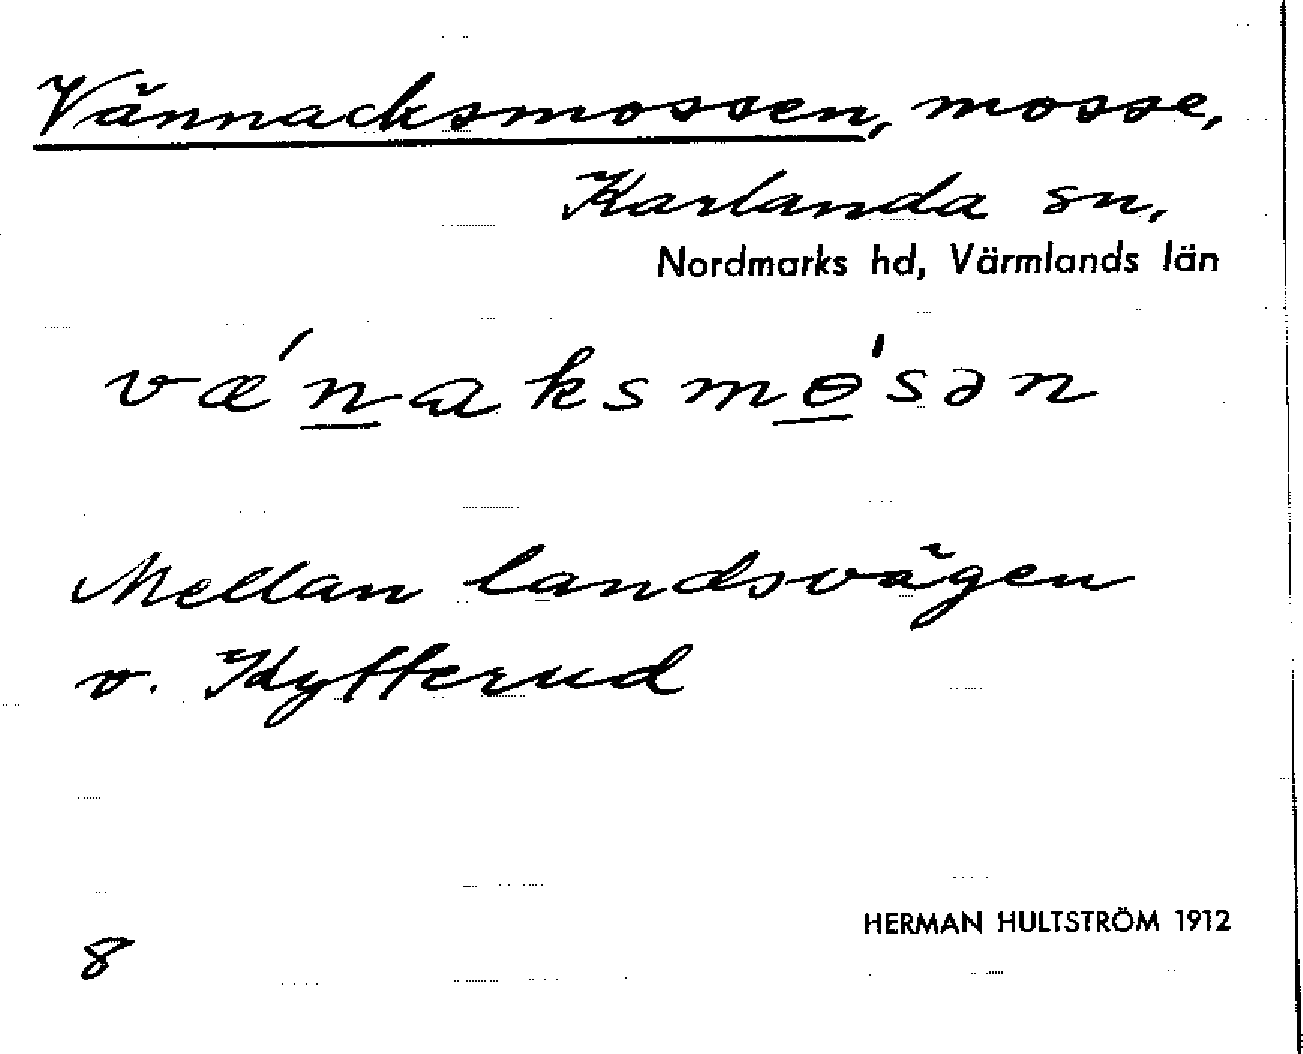 Vännacksmossen, mosse,
Karlanda sn,
Nordmarks hd, Värmlands län
væ´n̲aksmɵ̲'sən
Mellan landsvägen
o. Kytterud
8
HERMAN HULTSTRÖM 1912